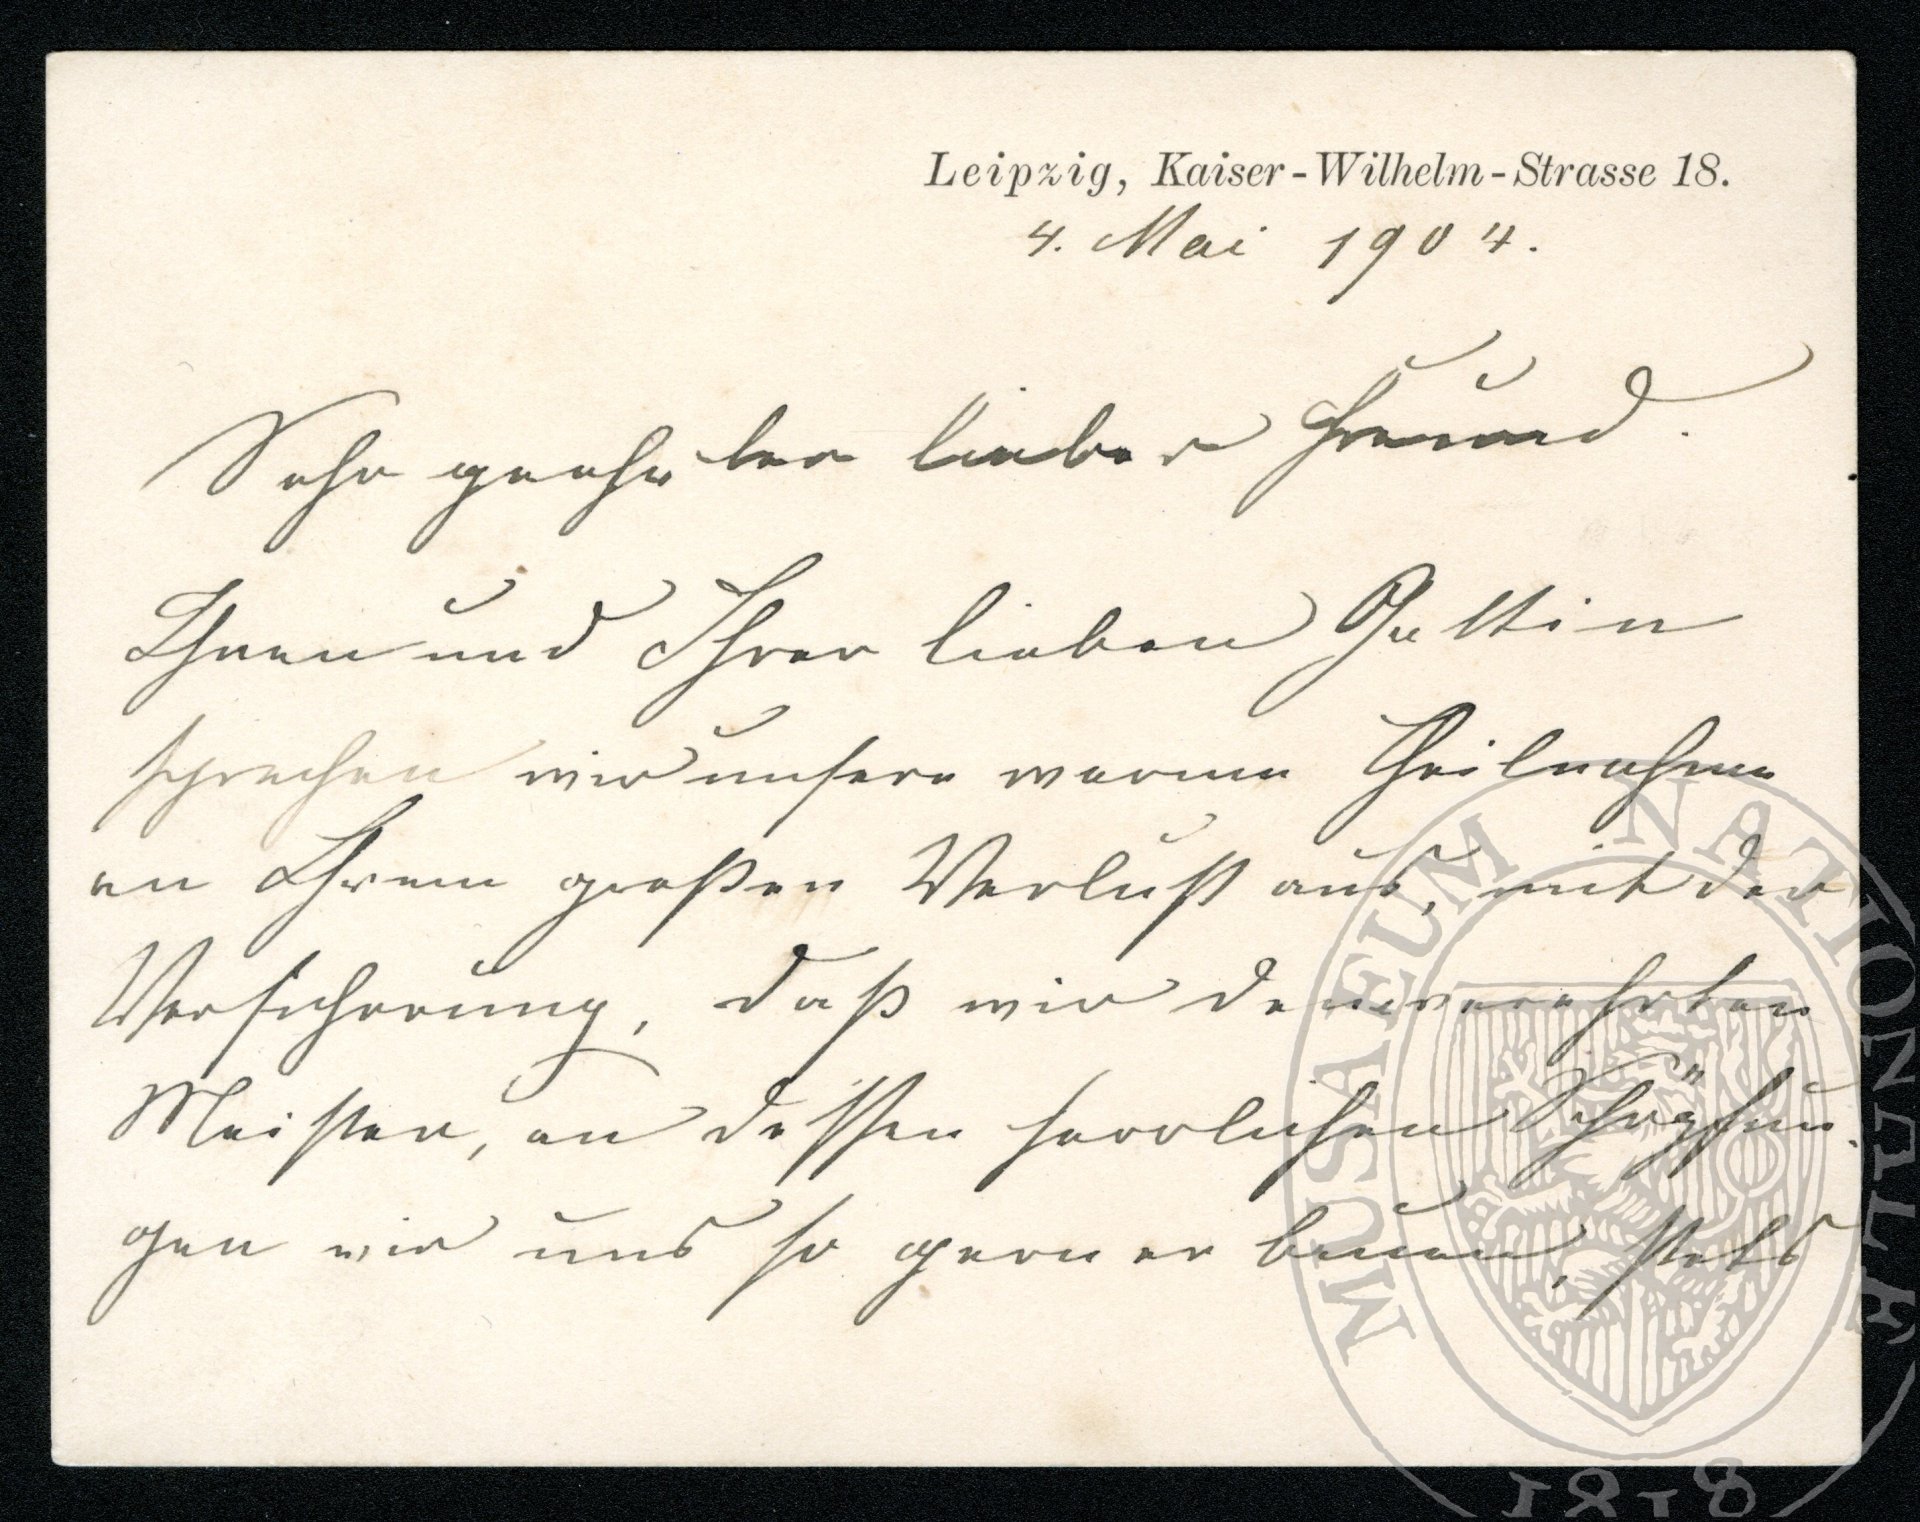 Leipzig, Kaiser-Wilhelm-Strasse 18.
4. Mai 1904.
Sehr geehrter lieber Freund.
Ihnen und Ihrer lieben Gattin
sprechen wir unsere warme Theilnahme
an Ihrem großen Verlust aus, mit der
Versicherung, daß wir dem verehrten
Meister, an dessen herrlichen Schöpfun-
gen wir uns so gerne erbauen, stets
MUSAEUM NATIONALE
1818